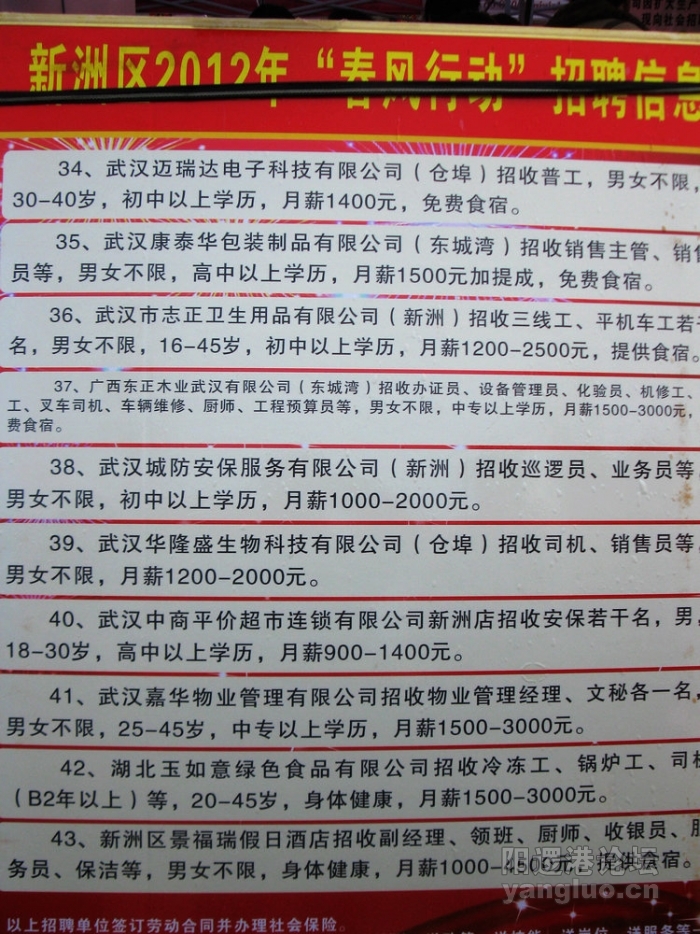 司因扩大生产
现向社会招
新洲区2012年“春风行动”招聘信息
34、武汉迈瑞达电子科技有限公司（仓埠）招收普工，男女不限，
30-40岁，初中以上学历，月薪1400元，免费食宿。
35、武汉康泰华包装制品有限公司（东城湾）招收销售主管、销售
员等，男女不限，高中以上学历，月薪1500元加提成，免费食宿。
36、武汉市志正卫生用品有限公司（新洲）招收三线工、平机车工若干
名，男女不限，16-45岁，初中以上学历，月薪1200-2500元，提供食宿。
37、广西东正木业武汉有限公司（东城湾）招收办证员、设备管理员、化验员、机修工、
工、叉车司机、车辆维修、厨师、工程预算员等，男女不限，中专以上学历，月薪1500-3000元，
费食宿。
38、武汉城防安保服务有限公司（新洲）招收巡逻员、业务员等，
男女不限，初中以上学历，月薪1000-2000元。
39、武汉华隆盛生物科技有限公司（仓埠）招收司机、销售员等，
男女不限，月薪1200-2000元。
40、武汉中商平价超市连锁有限公司新洲店招收安保若干名，男，
18-30岁，高中以上学历，月薪900-1400元。
41、武汉嘉华物业管理有限公司招收物业管理经理、文秘各一名，
男女不限，25-45岁，中专以上学历，月薪1500-3000元。
42、湖北玉如意绿色食品有限公司招收冷冻工、锅炉工、司机
（B2年以上）等，20-45岁，身体健康，月薪1500-3000元。
43、新洲区景福瑞假日酒店招收副经理、领班、厨师、收银员、服
务员、保洁等，男女不限，身体健康，月薪1000-4500元，提供食宿。
阳逻港论坛
yangluo.cn
以上招聘单位签订劳动合同并办理社会保险。
送技能、送岗位、送服务等